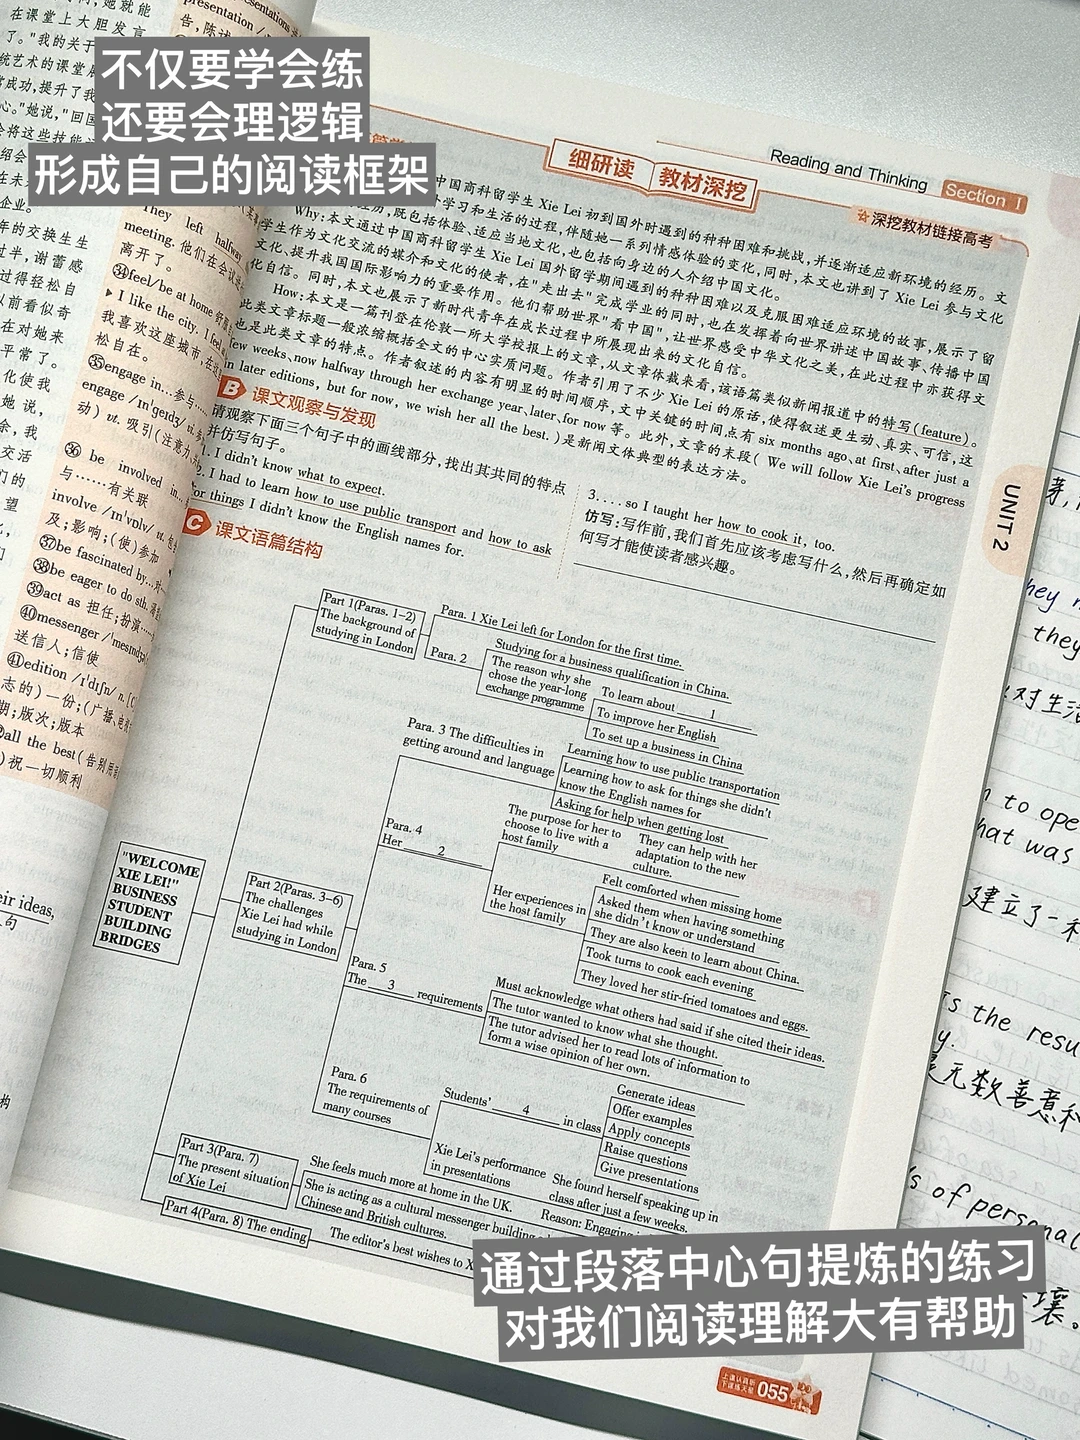 不仅要学会练
还要会理逻辑
形成自己的阅读框架
Reading and Thinking Section Ⅰ
细研读 教材深挖
☆深挖教材链接高考
中国商科留学生 Xie Lei 初到国外时遇到的种种困难和挑战,并逐渐适应新环境的经历。文
学习和生活的过程,伴随她一系列情感体验的变化,同时,本文也讲到了 Xie Lei 参与文化
既包括体验、适应当地文化,也包括向身边的人介绍中国文化。
Why:本文通过中国商科留学生 Xie Lei 国外留学期间遇到的种种困难以及克服困难适应环境的故事,展示了留
学生作为文化交流的媒介和文化的使者,在"走出去"完成学业的同时,也在发挥着向世界讲述中国故事、传播中国
文化、提升我国国际影响力的重要作用。他们帮助世界"看中国",让世界感受中华文化之美,在此过程中亦获得文
化自信。同时,本文也展示了新时代青年在成长过程中所展现出来的文化自信。
How:本文是一篇刊登在伦敦一所大学校报上的文章,从文章体裁来看,该语篇类似新闻报道中的特写(feature)。
此类文章标题一般浓缩概括全文的中心实质问题。作者引用了不少 Xie Lei 的原话,使得叙述更生动、真实、可信,这
也是此类文章的特点。作者叙述的内容有明显的时间顺序,文中关键的时间点有 six months ago、at first、after just a
few weeks、now halfway through her exchange year、later、for now 等。此外,文章的末段( We will follow Xie Lei's progress
in later editions, but for now, we wish her all the best. )是新闻文体典型的表达方法。
B 课文观察与发现
请观察下面三个句子中的画线部分,找出其共同的特点
并仿写句子。
1. I didn't know what to expect.
2. I had to learn how to use public transport and how to ask
for things I didn't know the English names for.
3. . . . so I taught her how to cook it, too.
仿写:写作前,我们首先应该考虑写什么,然后再确定如
何写才能使读者感兴趣。
UNIT 2
C 课文语篇结构
"WELCOME
XIE LEI!"
BUSINESS
STUDENT
BUILDING
BRIDGES
Part 1(Paras. 1–2)
The background of
studying in London
Para. 1 Xie Lei left for London for the first time.
Para. 2
Studying for a business qualification in China.
The reason why she
chose the year-long
exchange programme
To learn about 1
To improve her English
To set up a business in China
Part 2(Paras. 3–6)
The challenges
Xie Lei had while
studying in London
Para. 3 The difficulties in
getting around and language
Learning how to use public transportation
Learning how to ask for things she didn't
know the English names for
Asking for help when getting lost
Para. 4
Her 2
The purpose for her to
choose to live with a
host family
They can help with her
adaptation to the new
culture.
Her experiences in
the host family
Felt comforted when missing home
Asked them when having something
she didn't know or understand
They are also keen to learn about China.
Took turns to cook each evening
They loved her stir-fried tomatoes and eggs.
Para. 5
The 3 requirements
Must acknowledge what others had said if she cited their ideas.
The tutor wanted to know what she thought.
The tutor advised her to read lots of information to
form a wise opinion of her own.
Para. 6
The requirements of
many courses
Students' 4 in class
Generate ideas
Offer examples
Apply concepts
Raise questions
Give presentations
Xie Lei's performance
in presentations
She found herself speaking up in
class after just a few weeks.
Reason: Engaging
Part 3(Para. 7)
The present situation
of Xie Lei
She feels much more at home in the UK.
She is acting as a cultural messenger building
Chinese and British cultures.
Part 4(Para. 8) The ending
The editor's best wishes to X
通过段落中心句提炼的练习
对我们阅读理解大有帮助
上课认真听
下课练天星
055
They left halfway
meeting. 他们在会议
离开了。
㉞feel/be at home
▶ I like the city. I feel
我喜欢这座城市
松自在。
㉟engage in...参与……
engage /ɪnˈɡeɪdʒ/ vi.
动) vt. 吸引(注意力
㊱ be involved in...
与……有关联
involve /ɪnˈvɒlv/ vt.
及;影响;(使)参加
㊲be fascinated by...对
㊳be eager to do sth.
㊴act as 担任;扮演
㊵messenger
送信人;信使
㊶edition /ɪˈdɪʃn/ n. [C]
志的)一份;(广播、电
期;版次;版本
all the best(告别用
)祝一切顺利
they
对生活
to ope
hat was
建立了一
is the resu
无数善意和
s of personal
壤。